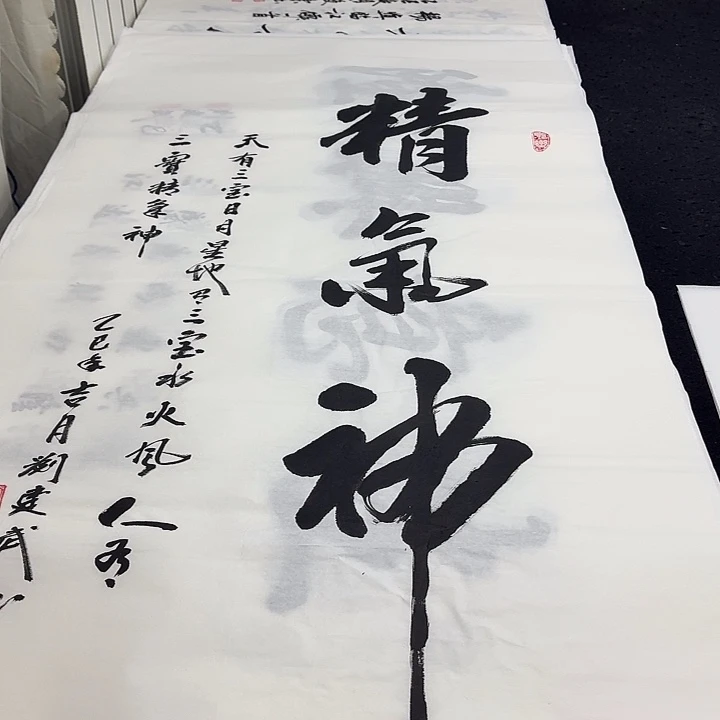 精氣神
天有三宝日月星地有三宝水火风人有
三寶精氣神
乙巳年吉月刘建武